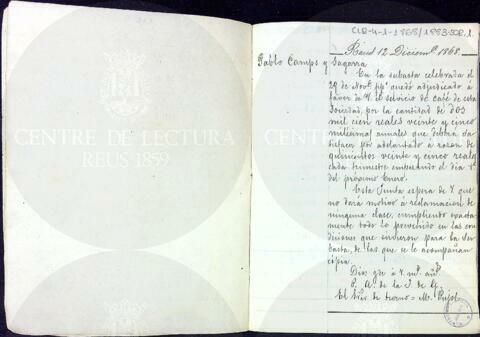 CLR-4-1-1868/1883-SCR.1
Reus 12 Diciemb. 1868.
Pablo Camps y Sagarra
En la subasta celebrada el
29 de Novbe. ppº quedó adjudicado á
favor de V. el servicio de café de esta
Sociedad, por la cantidad de dos
mil cien reales veinte y cinco
milésimas anuales que deberá sa-
tisfacer por adelantado á razon de
quinientos veinte y cinco reales
cada trimestre empezando el dia 1º
del próximo Enero.
Esta Junta espera de V. que
no dará motivo á reclamacion de
ninguna clase, cumpliendo exacta-
mente todo lo prevenido en las con-
diciones que sirvieron para la su-
basta, de las que se le acompañan
cópia.
Dios gde á V. ms. añs.
P. A. de la J. de G.
El Srio de turno = M. Pujol
CENTRE DE LECTURA
REUS 1859